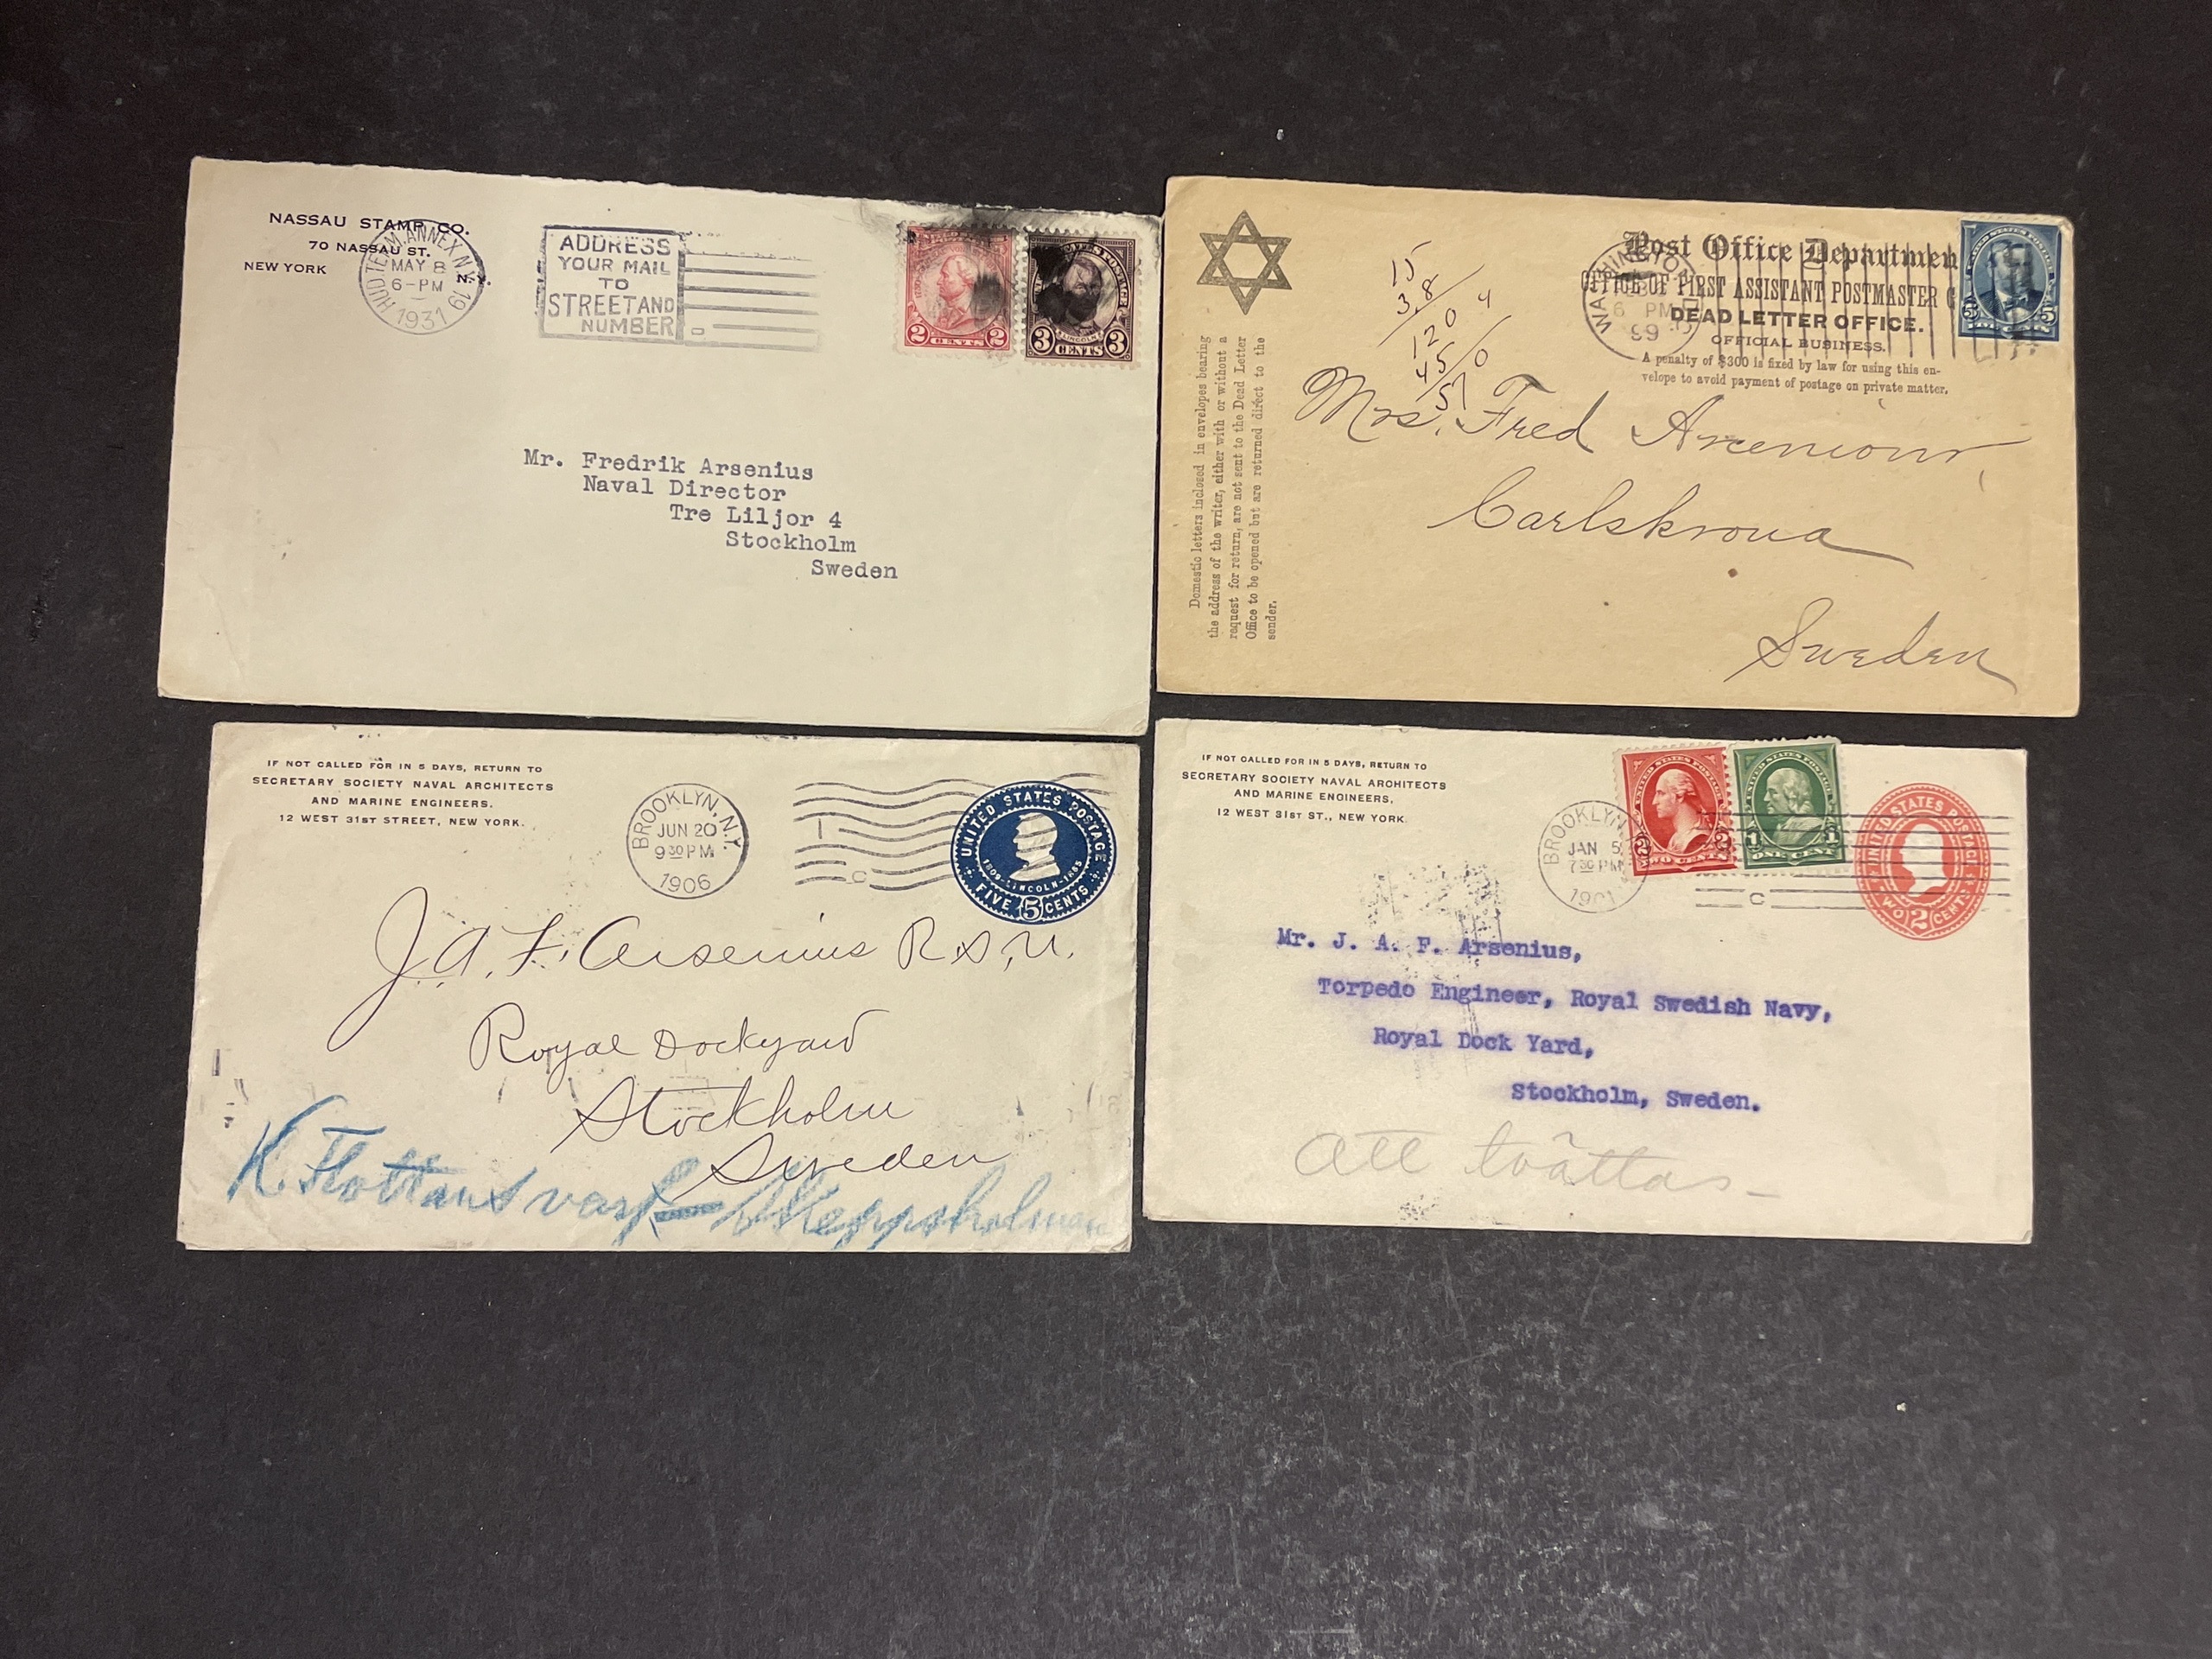 NASSAU STAMP CO.
70 NASSAU ST.
NEW YORK N.Y.
HUD TERM. ANNEX N.Y. 19
MAY 8
6-PM
1931
ADDRESS
YOUR MAIL
TO
STREET AND
NUMBER
2 CENTS 2
LINCOLN
3 CENTS 3
Mr. Fredrik Arsenius
Naval Director
Tre Liljor 4
Stockholm
Sweden
Post Office Departmen
OFFICE OF FIRST ASSISTANT POSTMASTER G
DEAD LETTER OFFICE.
OFFICIAL BUSINESS.
A penalty of $300 is fixed by law for using this en-
velope to avoid payment of postage on private matter.
WASHINGTON D.C.
6 PM
99
5 5
15
3.8
120 4
45 0
570
Domestic letters inclosed in envelopes bearing
the address of the writer, either with or without a
request for return, are not sent to the Dead Letter
Office to be opened but are returned direct to the
sender.
Mrs. Fred Arceniour,
Carlskrona
Sweden
IF NOT CALLED FOR IN 5 DAYS, RETURN TO
SECRETARY SOCIETY NAVAL ARCHITECTS
AND MARINE ENGINEERS.
12 WEST 31ST STREET, NEW YORK.
BROOKLYN, N.Y.
JUN 20
9 30 PM
1906
C
UNITED STATES POSTAGE
1809-LINCOLN-1865
FIVE 5 CENTS
J. A. F. Arsenius R.S.N.
Royal Dockyard
Stockholm
Sweden
K. Flottans varf - Skeppsholmen
IF NOT CALLED FOR IN 5 DAYS, RETURN TO
SECRETARY SOCIETY NAVAL ARCHITECTS
AND MARINE ENGINEERS,
12 WEST 31ST ST., NEW YORK.
BROOKLYN,
JAN 5
7 30 PM
1901
C
UNITED STATES POSTAGE
2 TWO CENTS 2
UNITED STATES POSTAGE
1 ONE CENT 1
UNITED STATES POSTAGE
TWO 2 CENTS
Mr. J. A. F. Arsenius,
Torpedo Engineer, Royal Swedish Navy,
Royal Dock Yard,
Stockholm, Sweden.
att tvättas-